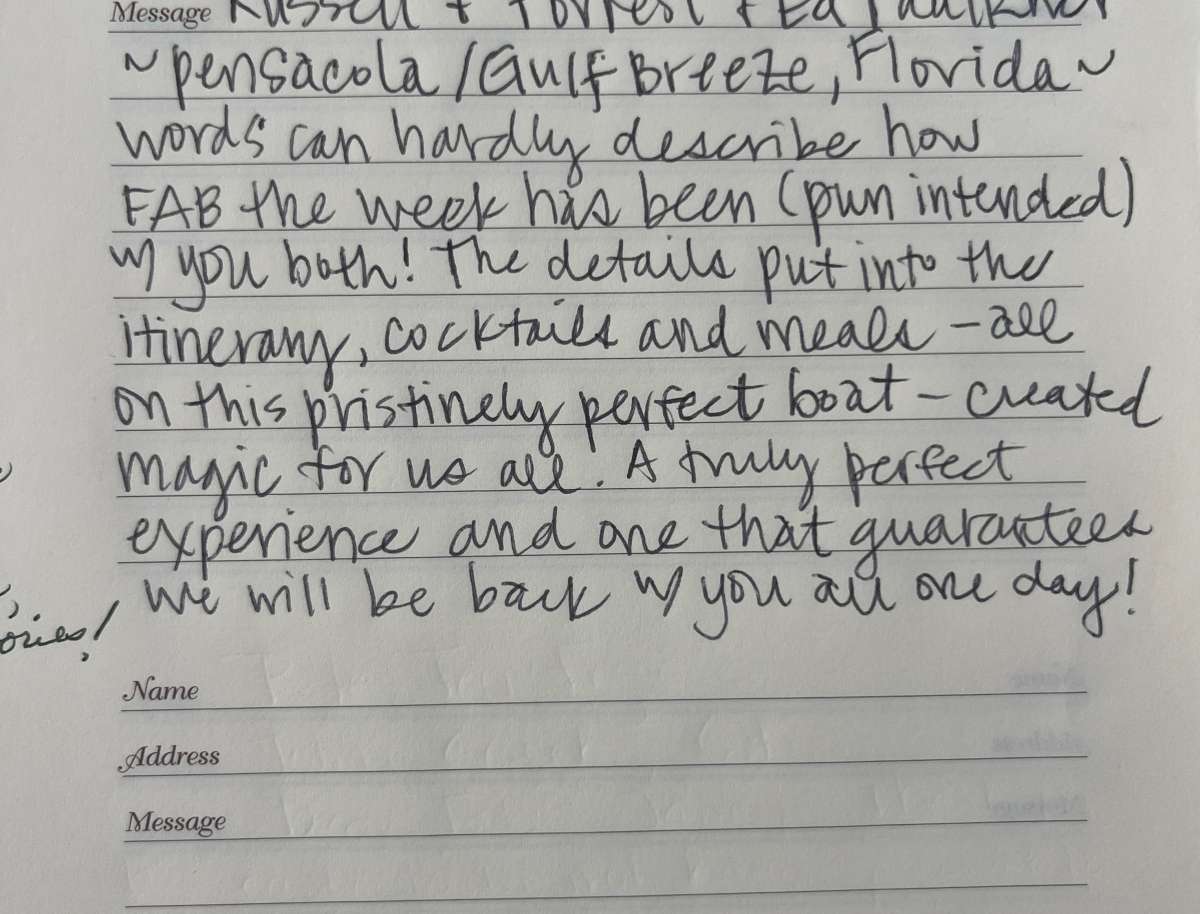 Message Russell + Forrest + Ed Faulkner
~ pensacola / Gulf Breeze, Florida ~
words can hardly describe how
FAB the week has been (pun intended)
w/ you both! The details put into the
itinerary, cocktails and meals - all
on this pristinely perfect boat - created
magic for us all. A truly perfect
experience and one that guarantees
we will be back w/ you all one day!
ories!
Name
Address
Message